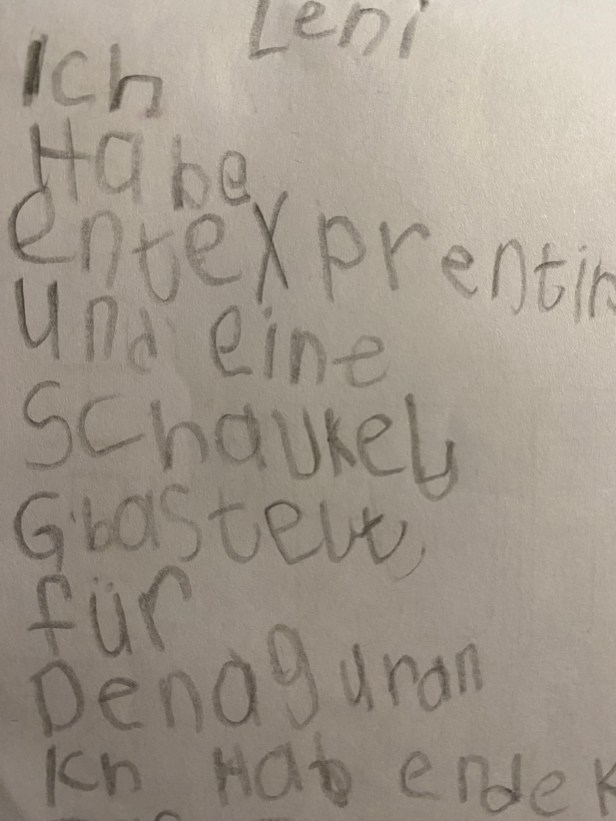 Leni
Ich
Habe
entexprentin
und eine
Schaukel
Gbastelt
für
Denaguran
Ich Hab endek